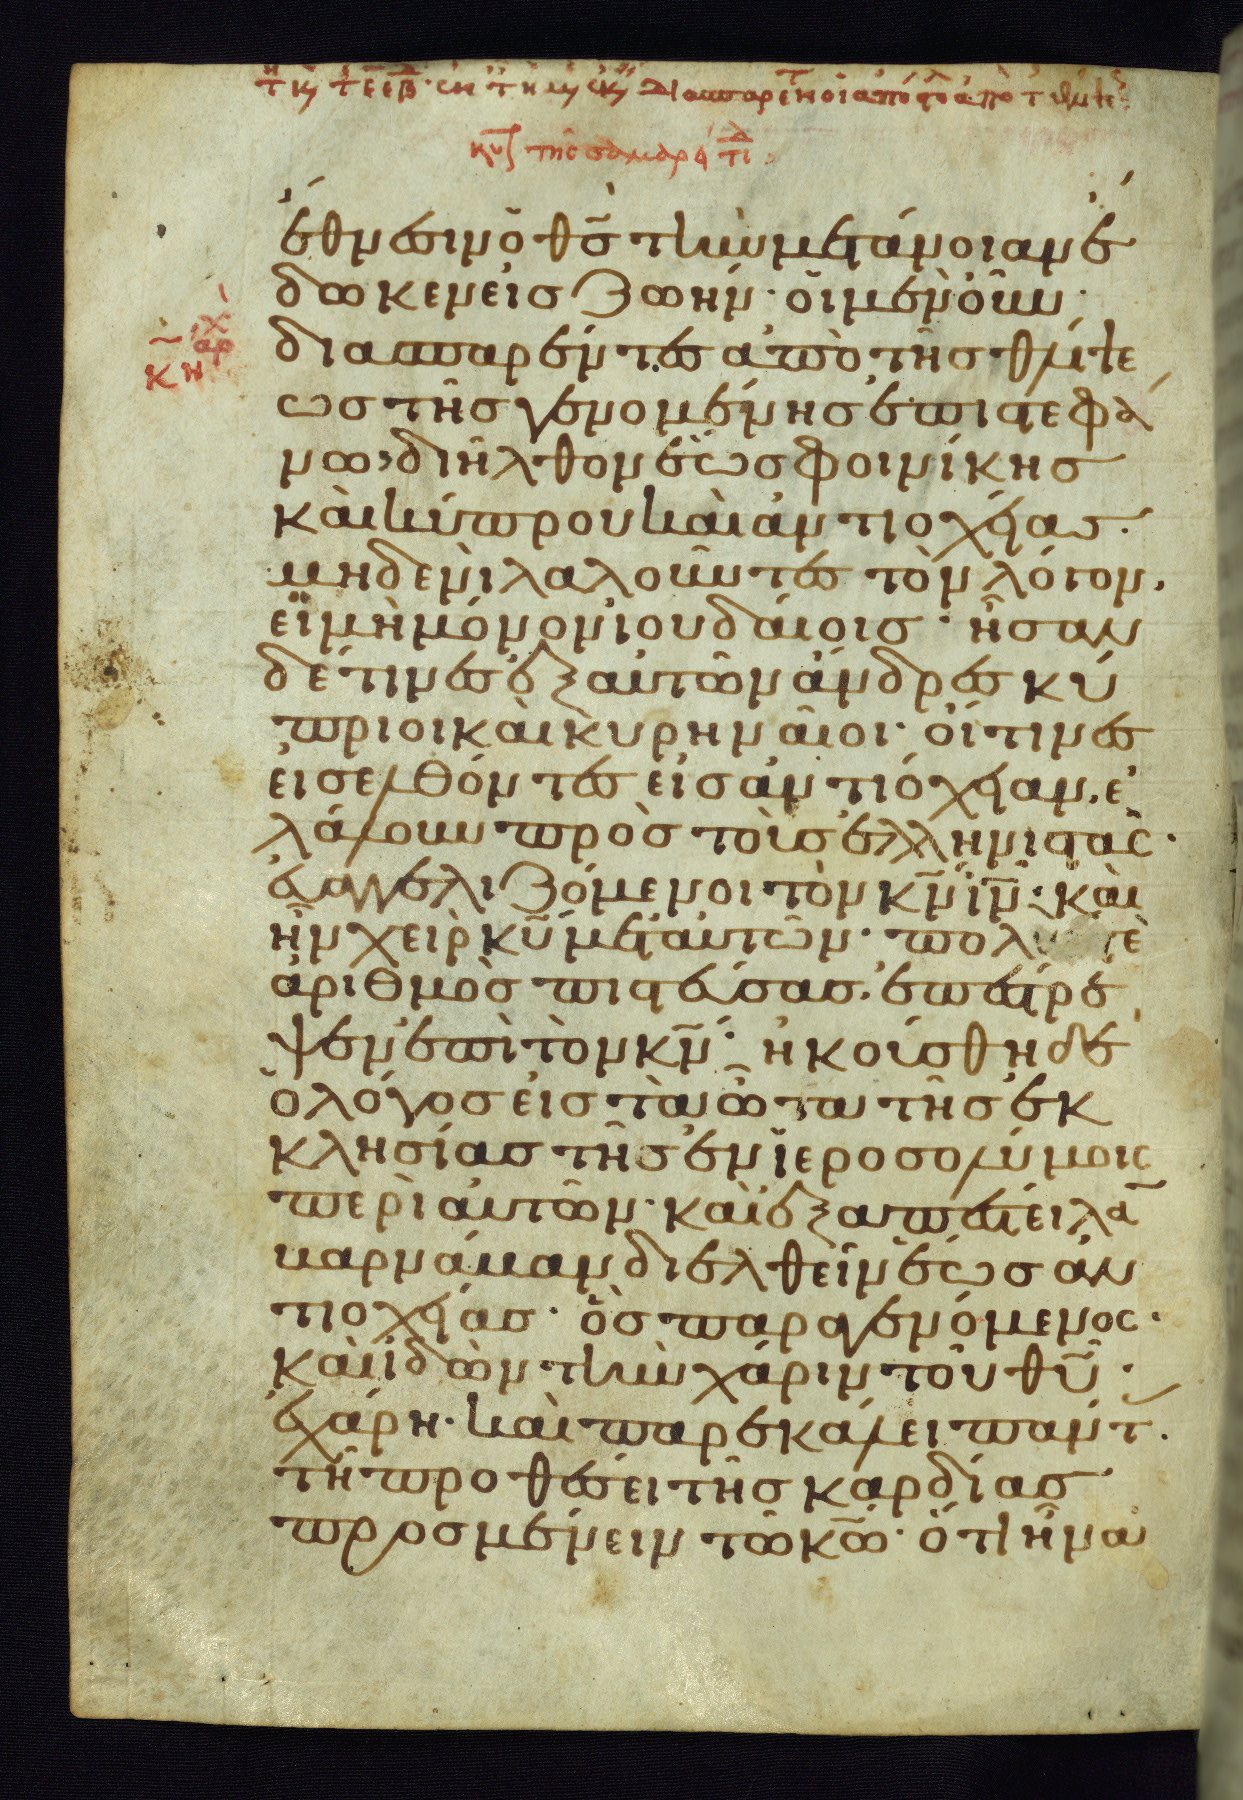 κυ τῆς σαμαρ
ἔθνεσιν ὁ θς τὴν μετάνοιαν ἔ
δωκεν εἰς ζωήν· οἱ μὲν οὖν
ἀρχ
κη
διασπαρέντες ἀπὸ τῆς θλίψε
ως τῆς γενομένης ἐπὶ στεφά
νω, διῆλθον ἕως φοινίκης
καὶ κύπρου καὶ ἀντιοχείας·
μηδενὶ λαλοῦντες τὸν λόγον,
εἰ μὴ μόνον ἰουδαίοις· ἦσαν
δέ τινες ἐξ αὐτῶν ἄνδρες κύ
πριοι καὶ κυρηναῖοι· οἵτινες
εἰσελθόντες εἰς ἀντιόχειαν, ἐ
λάλουν πρὸς τοὺς ἑλληνιστάς·
εὐαγγελιζόμενοι τὸν κν ιν· καὶ
ἦν χεὶρ κυ μετ αὐτῶν· πολύς τὲ
ἀριθμὸς πιστεύσας, ἐπέστρε
ψεν ἐπὶ τὸν κν· ἠκούσθη δὲ
ὁ λόγος εἰς τὰ ὦτα τῆς ἐκ
κλησίας τῆς ἐν ἱεροσολύμοις
περὶ αὐτῶν· καὶ ἐξαπέστειλα
βαρνάβαν διελθεῖν ἕως ἀν
τιοχείας· ὃς παραγενόμενος·
καὶ ἰδὼν τὴν χάριν τοῦ θυ·
ἐχάρη· καὶ παρεκάλει πάντ
τῆ προθέσει τῆς καρδίας
προσμένειν τῶ κω· ὅτι ἦν α